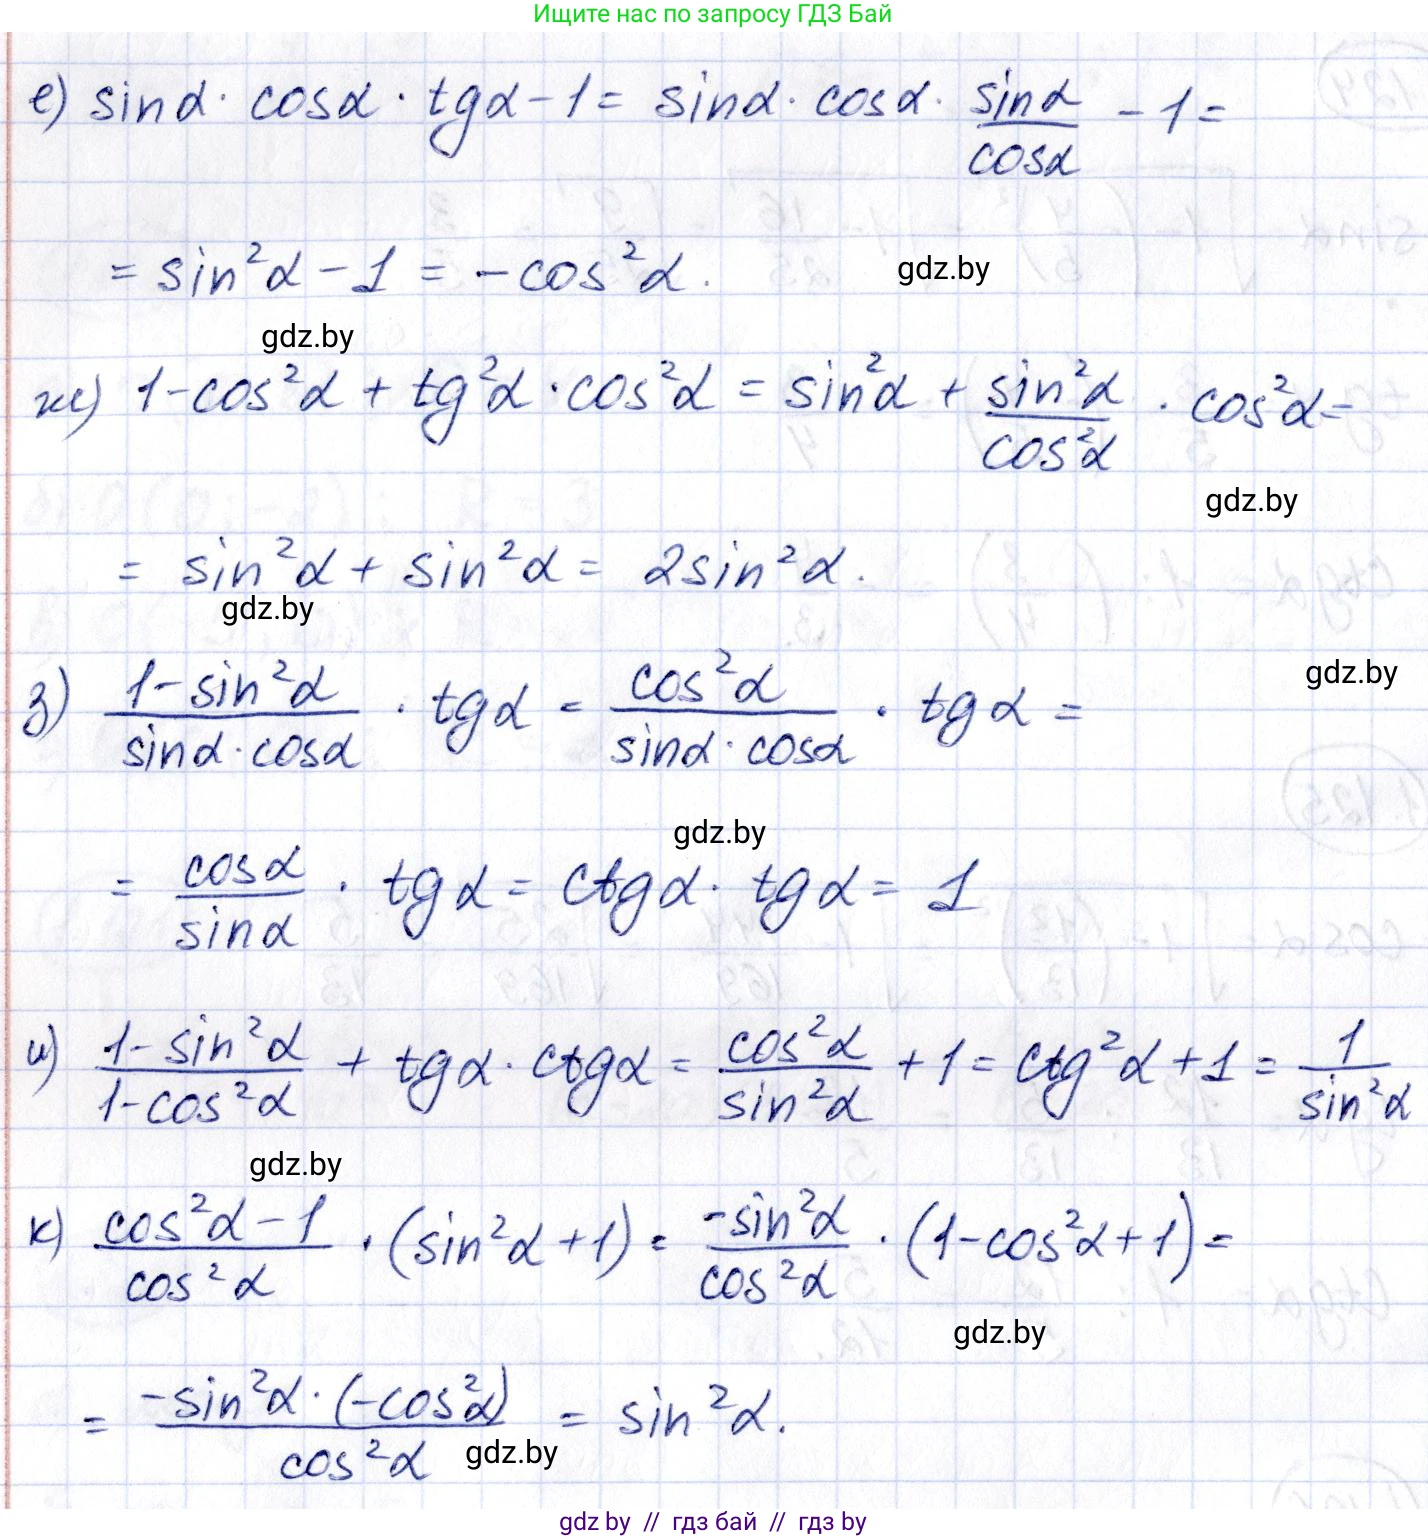 Ищите нас по запросу ГДЗ Бай
е) sinα · cosα · tgα - 1 = sinα · cosα · sinα/cosα - 1 =
= sin²α - 1 = -cos²α.
gdz.by
gdz.by
ж) 1 - cos²α + tg²α · cos²α = sin²α + sin²α/cos²α · cos²α =
gdz.by
= sin²α + sin²α = 2sin²α.
gdz.by
gdz.by
з) (1 - sin²α)/(sinα · cosα) · tgα = cos²α/(sinα · cosα) · tgα =
gdz.by
= cosα/sinα · tgα = ctgα · tgα = 1
и) (1 - sin²α)/(1 - cos²α) + tgα · ctgα = cos²α/sin²α + 1 = ctg²α + 1 = 1/sin²α
gdz.by
к) (cos²α - 1)/cos²α · (sin²α + 1) = -sin²α/cos²α · (1 - cos²α + 1) =
gdz.by
= -sin²α · (-cos²α)/cos²α = sin²α.
gdz.by
gdz.by // гдз бай // гдз by